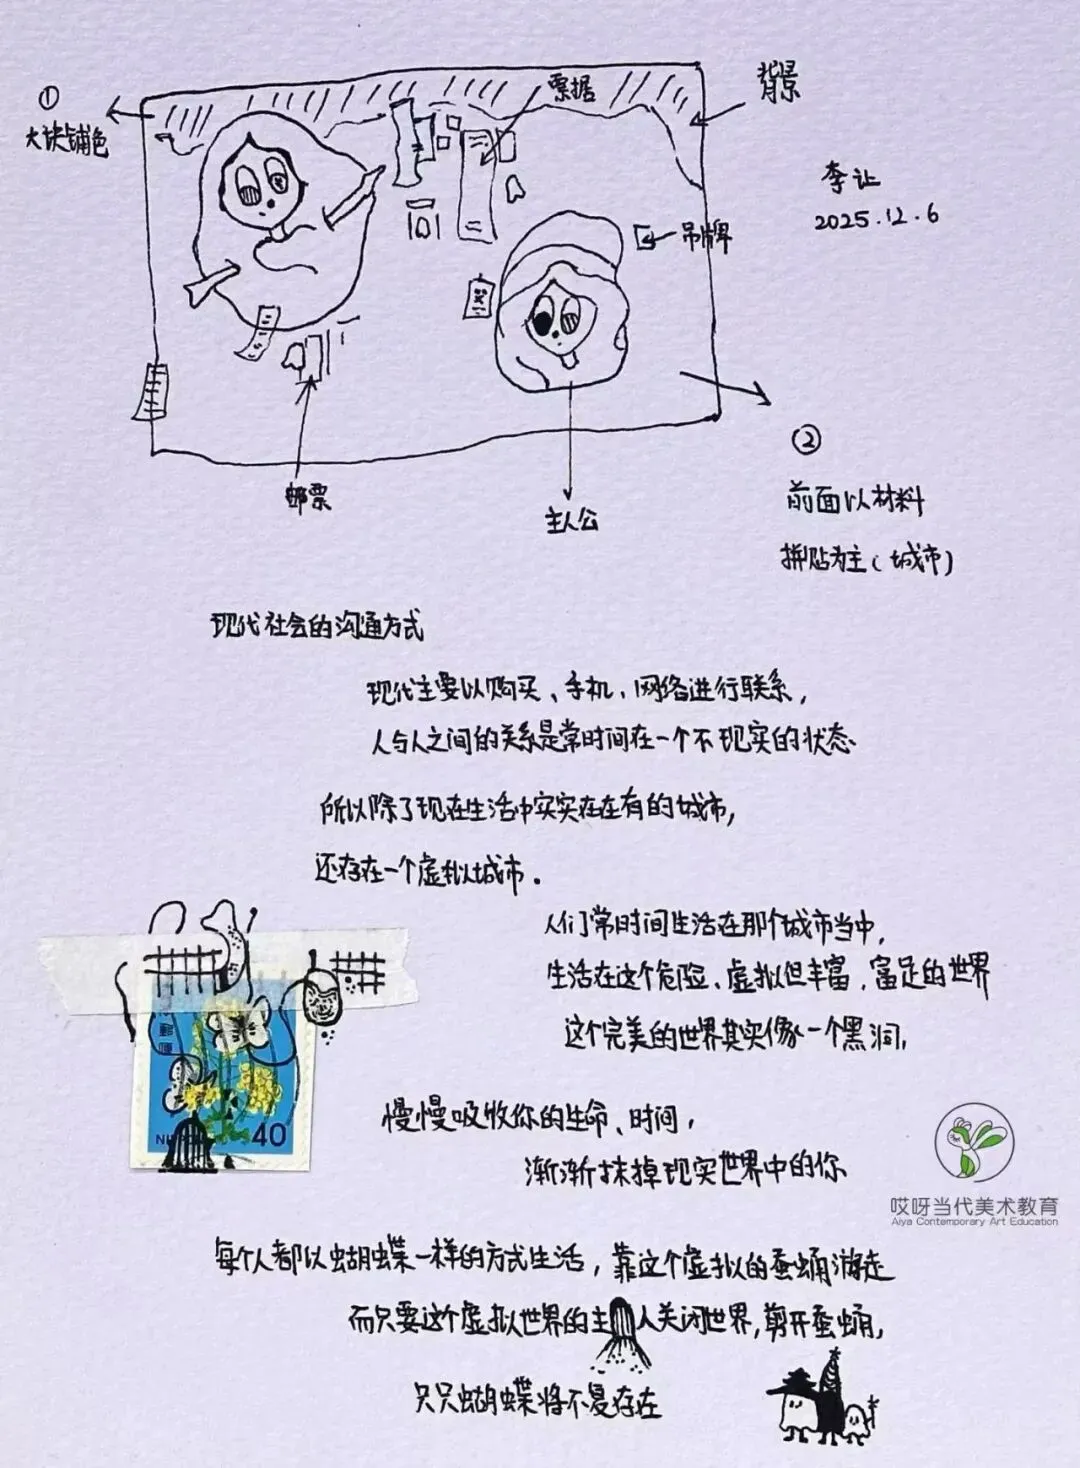 ①
大块铺色
票据
背景
李让
2025.12.6
吊牌
邮票
主人公
②
前面以材料
拼贴为主(城市)
现代社会的沟通方式
现代主要以购买、手机、网络进行联系,
人与人之间的关系是常时间在一个不现实的状态
所以除了现在生活中实实在在有的城市,
还存在一个虚拟城市.
人们常时间生活在那个城市当中,
生活在这个危险、虚拟但丰富,富足的世界
这个完美的世界其实像一个黑洞,
慢慢吸收你的生命、时间,
渐渐抹掉现实世界中的你
NIPPON
40
哎呀当代美术教育
Aiya Contemporary Art Education
每个人都以蝴蝶一样的方式生活,靠这个虚拟的蚕蛹游走
而只要这个虚拟世界的主人关闭世界,剪开蚕蛹,
只只蝴蝶将不复存在